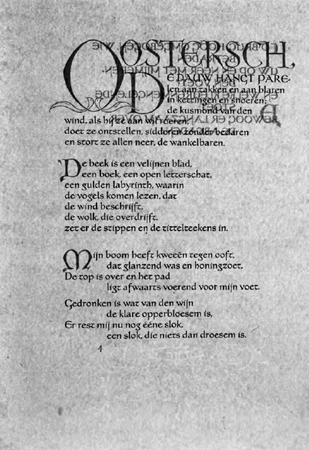 OOSTERSCH,
DE DAUW HANGT PARE-
len aan takken en aan blaren
in kettingen en snoeren;
de kusmond van den
wind, als hij ze aan wil roeren,
doet ze ontstellen, sidderen zonder bedaren
en stort ze allen neer, de wankelbaren.
De beek is een velijnen blad,
een boek, een open letterschat,
een gulden labyrinth, waarin
de vogels komen lezen, dat
de wind beschrijft,
de wolk, die overdrijft,
zet er de stippen en de tittelteekens in.
Mijn boom heeft kweeën tegen ooft,
dat glanzend was en honingzoet.
De top is over en het pad
ligt afwaarts voerend voor mijn voet.
Gedronken is wat van den wijn
de klare opperbloesem is,
Er rest mij nu nog ééne slok,
een slok, die niets dan droesem is.